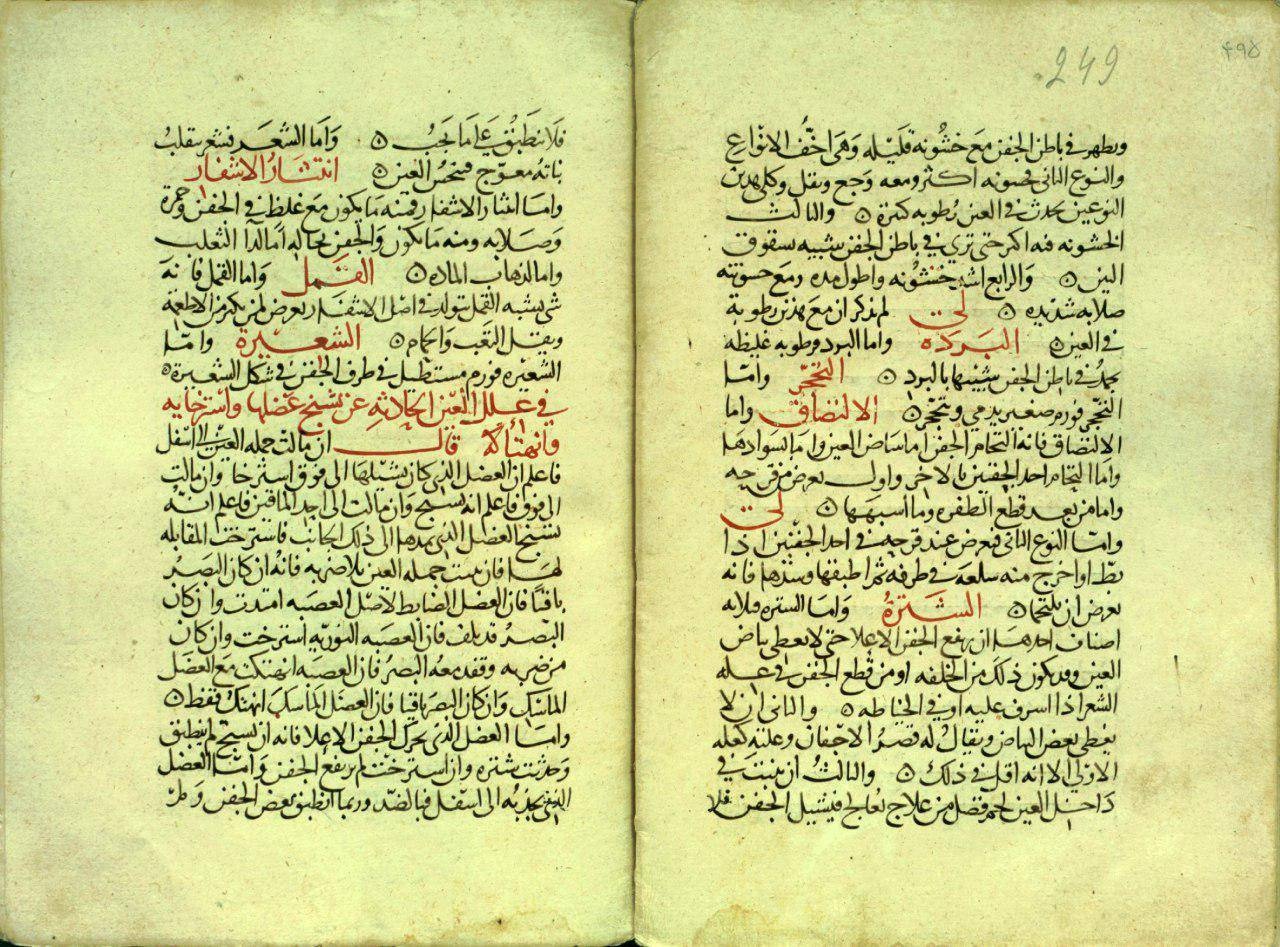 249
٤٩٥
ويظهر في باطن الجفن مع خشونه قليله وهي اخف الانواع
والنوع الثاني خشونه اكثر ومعه وجع وثقل وكلى هذين
النوعين يحدث في العين رطوبه كثيرة ٥ والثالث
الخشونه فيه اكثر حتى ترى في باطن الجفن شبيه بشقوق
التين ٥ والرابع اشد خشونه واطول مده ومع خشونته
صلابه شديده ٥ لى لم نذكر ان مع هذين رطوبة
في العين ٥ البرده واما البرد فرطوبه غليظه
تجمد في باطن الجفن شبيها بالبرد ٥ التحجر واما
التحجر فورم صغير يدمي ويتحجر ٥ الالتصاق واما
الالتصاق فانه التحام الجفن اما ببياض العين واما بسوادها
واما التحام احد الجفنين بالاخر والاول يعرض من قرحه
واما من بعد قطع الظفره وما اشبهها ٥ لى
واما النوع الثاني فيعرض عند قرحه في احد الجفنين اذا
بط او اخرج منه سلعه في طرفه ثم اطبقها وشدها فانه
يعرض ان يلتحما ٥ الشترة واما الشتره فثلاثه
اصناف احدها ان يرتفع الجفن الاعلا حتى لا يغطي بياض
العين وقد يكون ذلك من الخلقه او من قطع الجفن في عله
الشعر اذا اسرف عليه او في الخياطه ٥ والثاني ان لا
يغطي بعض البياض ويقال له قصر الاجفان وعلته كعله
الاولى الا انه اقل في ذلك ٥ والثالث ان ينبت في
داخل العين لحم فضل من علاج يعالج فيشيل الجفن فلا
فلا ينطبق على ما يجب ٥ واما الشعر فشعر ينقلب
نباته معوج فينخس العين ٥ انتثار الاشفار
واما انتثار الاشفار فمنه ما يكون مع غلظ في الجفن وحمرة
وصلابه ومنه ما يكون والجفن بحاله اما لداا الثعلب
واما لذهاب الماده ٥ القمل واما القمل فانه
شي يشبه القمل يتولد في اصل الاشفار يعرض لمن يكثر من الاطعمة
ويقل التعب والحمام ٥ الشعيرة واما
الشعيره فورم مستطيل في طرف الجفن في شكل الشعيرة ٥
في علل العين الحادثه عن تشنج عضلها واسترخايه
وانهتاكه قال ان مالت جمله العين الى اسفل
فاعلم ان العضل الذي كان يشيلها الى فوق استرخا وان مالت
الى فوق فاعلم انه تشنج وان مالت الى احد الماقين فاعلم انه
تشنج العضل الذي يمدها الى ذلك الجانب فاسترخت المقابله
لها فان نتت جمله العين بلا ضربه فانه ان كان البصر
باقيا فان العضل الضابط لاصل العصبه امتدت وان كان
البصر قد تلف فان العصبه النوريه استرخت وان كان
من ضربه وفقد معه البصر فان العصبه انهتكت مع العضل
الماسك وان كان البصر باقيا فان العضل الماسك انهتك فقط ٥
واما العضل الذي يحرك الجفن الاعلا فانه ان تشنج لم ينطبق
وحدثت شتره وان استرخت لم يرتفع الجفن واما العضل
الذي يجذبه الى اسفل فبالضد وربما انطبق بعض الجفن